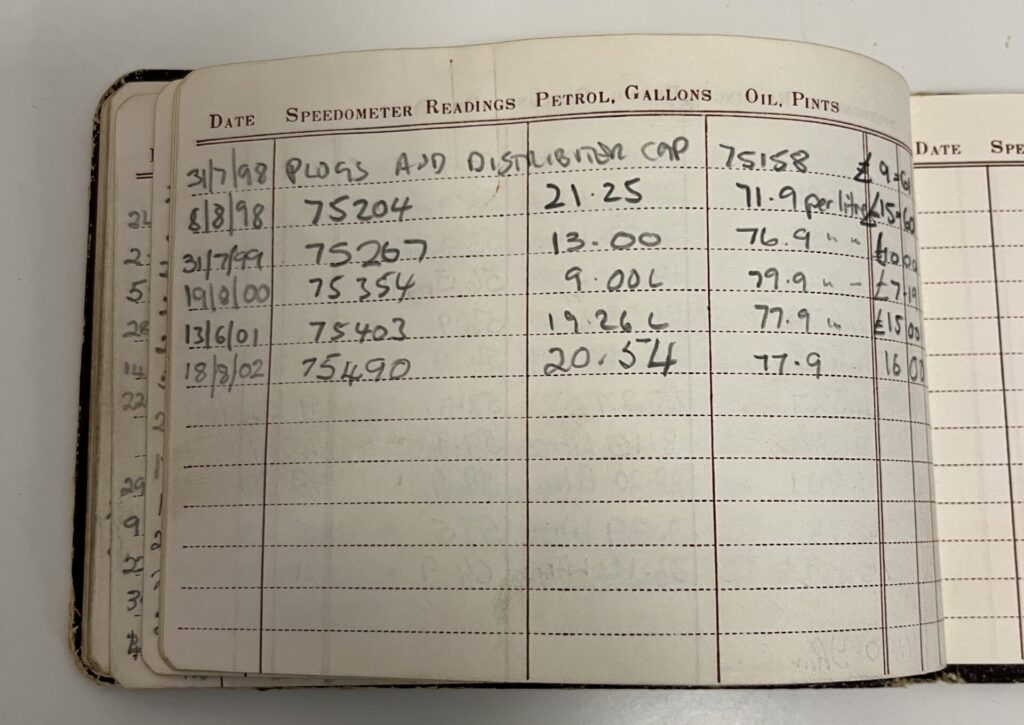 DATE SPEEDOMETER READINGS PETROL, GALLONS OIL, PINTS
31/7/98 PLUGS AND DISTRIBUTER CAP 75158 £ 9=61
8/8/98 75204 21.25 71.9 per litre £15=60
31/7/99 75267 13.00 76.9 " " £10.00
19/8/00 75354 9.00L 79.9 " - £7-19
13/6/01 75403 19.26 L 77.9 " £15 00
18/8/02 75490 20.54 77.9 16 00
DATE SPE